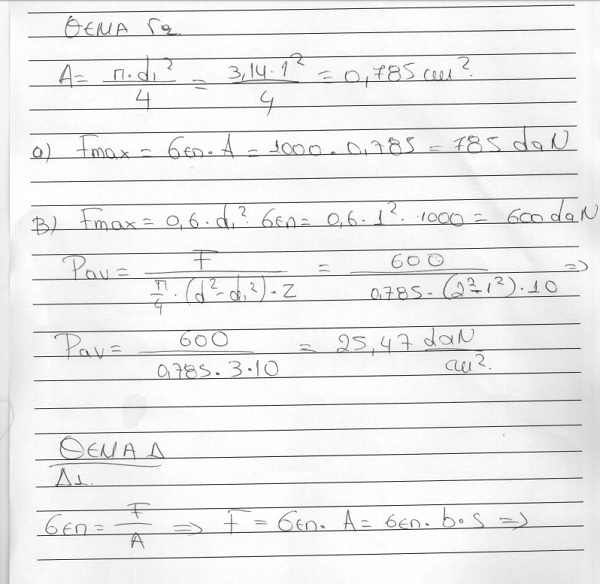 ΘΕΜΑ Γ2
A = π·d₁²/4 = 3,14·1²/4 = 0,785 cm².
α) Fmax = σεπ·A = 1000·0,785 = 785 daN
β) Fmax = 0,6·d₁²·σεπ = 0,6·1²·1000 = 600 daN
Pαν = F / (π/4·(d²-d₁²)·z) = 600 / (0,785·(2²-1²)·10) ⇒
Pαν = 600 / (0,785·3·10) = 25,47 daN/cm².
ΘΕΜΑ Δ
Δ1.
σεπ = F/A ⇒ F = σεπ·A = σεπ·b·s ⇒